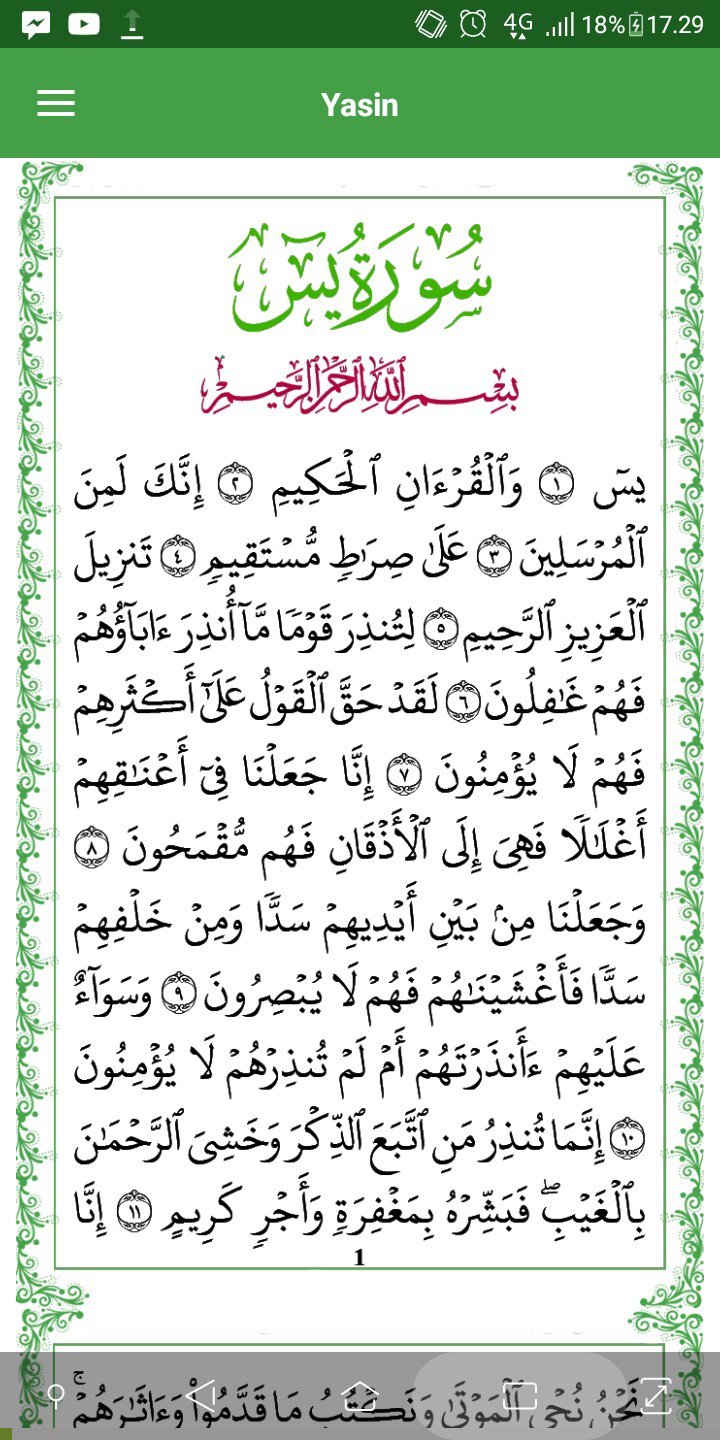 18% 17.29
4G
Yasin
سُورَةُ يسٓ
بِسْمِ ٱللَّهِ ٱلرَّحْمَٰنِ ٱلرَّحِيمِ
يسٓ ١ وَٱلْقُرْءَانِ ٱلْحَكِيمِ ٢ إِنَّكَ لَمِنَ
ٱلْمُرْسَلِينَ ٣ عَلَىٰ صِرَٰطٍ مُّسْتَقِيمٍ ٤ تَنزِيلَ
ٱلْعَزِيزِ ٱلرَّحِيمِ ٥ لِتُنذِرَ قَوْمًا مَّآ أُنذِرَ ءَابَآؤُهُمْ
فَهُمْ غَٰفِلُونَ ٦ لَقَدْ حَقَّ ٱلْقَوْلُ عَلَىٰٓ أَكْثَرِهِمْ
فَهُمْ لَا يُؤْمِنُونَ ٧ إِنَّا جَعَلْنَا فِىٓ أَعْنَٰقِهِمْ
أَغْلَٰلًا فَهِىَ إِلَى ٱلْأَذْقَانِ فَهُم مُّقْمَحُونَ ٨
وَجَعَلْنَا مِنۢ بَيْنِ أَيْدِيهِمْ سَدًّا وَمِنْ خَلْفِهِمْ
سَدًّا فَأَغْشَيْنَٰهُمْ فَهُمْ لَا يُبْصِرُونَ ٩ وَسَوَآءٌ
عَلَيْهِمْ ءَأَنذَرْتَهُمْ أَمْ لَمْ تُنذِرْهُمْ لَا يُؤْمِنُونَ
١٠ إِنَّمَا تُنذِرُ مَنِ ٱتَّبَعَ ٱلذِّكْرَ وَخَشِىَ ٱلرَّحْمَٰنَ
بِٱلْغَيْبِ ۖ فَبَشِّرْهُ بِمَغْفِرَةٍ وَأَجْرٍ كَرِيمٍ ١١ إِنَّا
1
نَحْنُ نُحْىِ ٱلْمَوْتَىٰ وَنَكْتُبُ مَا قَدَّمُوا۟ وَءَاثَٰرَهُمْ ۚ